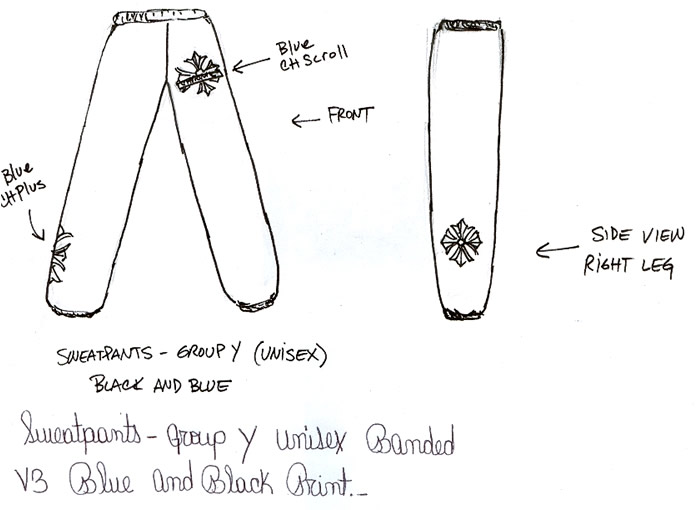 Blue
CH Scroll
FRONT
Blue
CH Plus
SIDE VIEW
RIGHT LEG
SWEATPANTS - GROUP Y (UNISEX)
BLACK AND BLUE
Sweatpants - Group Y Unisex Banded
V3 Blue and Black Print._